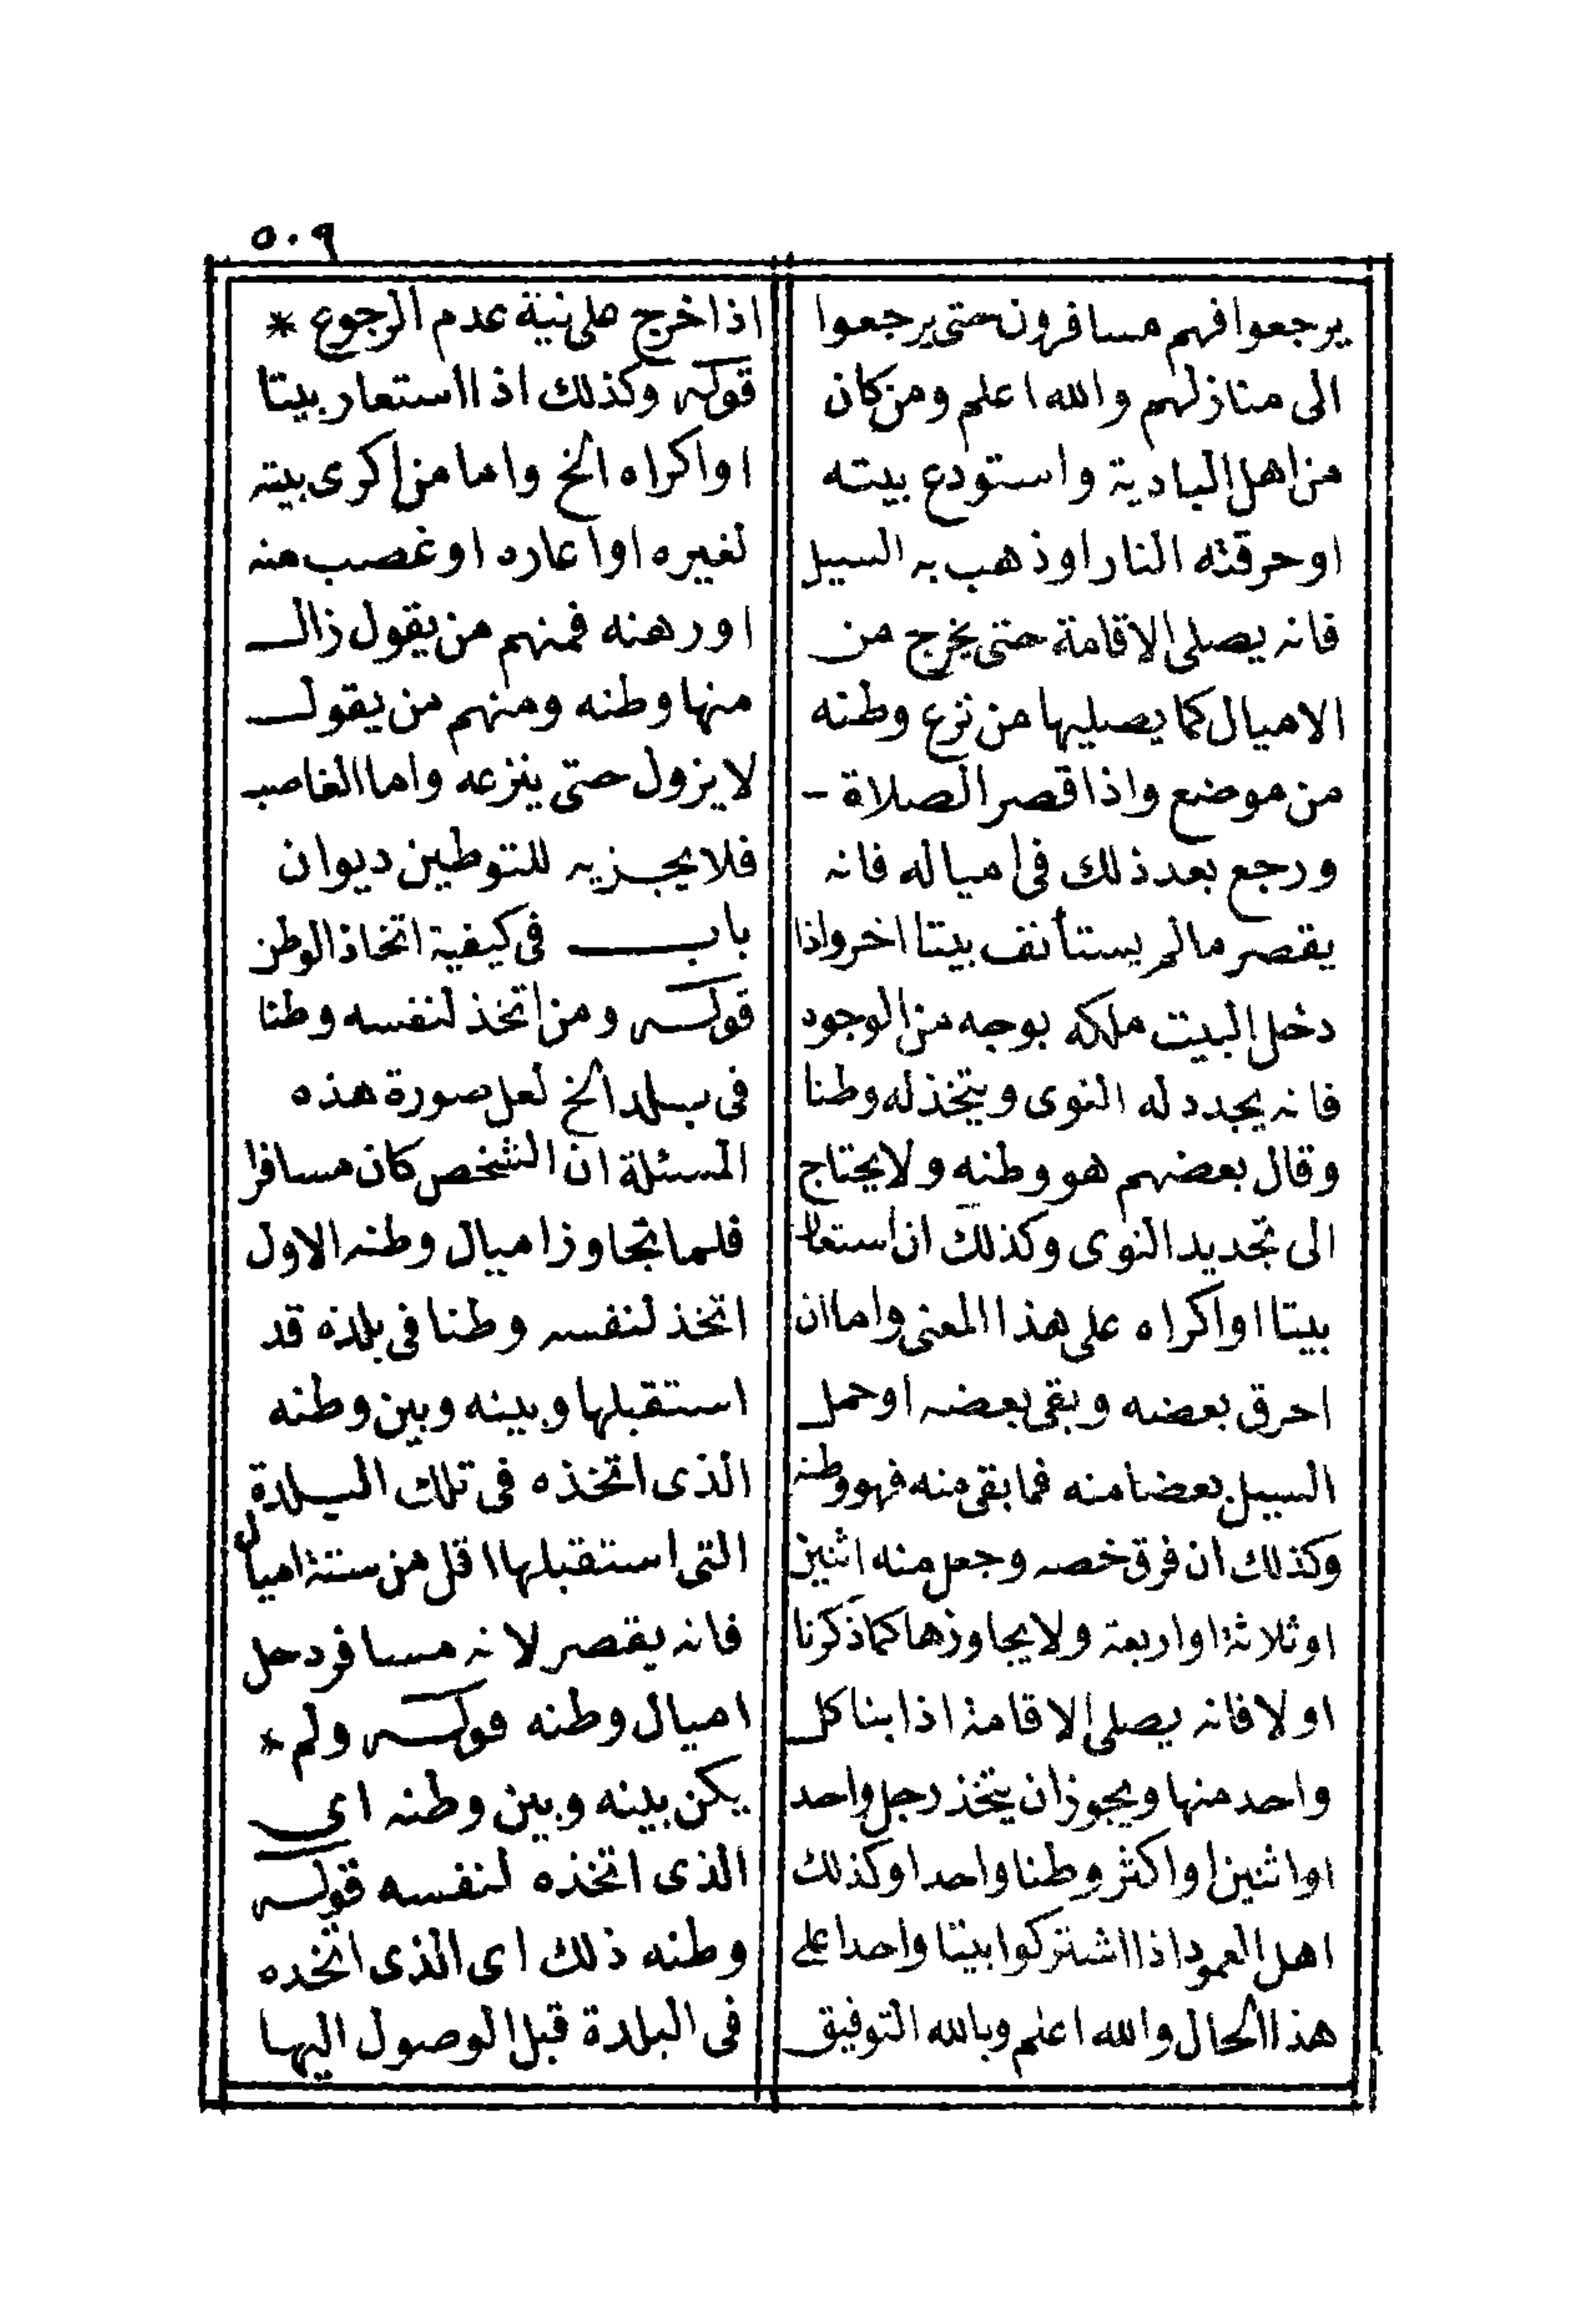 ٥٠٩
يرجعوا فهم مسافرون حتى يرجعوا
الى منازلهم والله اعلم ومن كان
من اهل البادية واستودع بيته
او حرقته النار او ذهب به السيل
فانه يصلى الاقامة حتى يخرج من
الاميال كما يصليها من نزع وطنه
من موضع واذا قصر الصلاة -
ورجع بعد ذلك فى امياله فانه
يقصر مالم يستأنف بيتا اخر واذا
دخل البيت ملكه بوجه من الوجوه
فانه يجدد له النوى ويتخذ له وطنا
وقال بعضهم هو وطنه ولا يحتاج
الى تجديد النوى وكذلك ان استعار
بيتا او اكراه على هذا المعنى واما ان
احرق بعضه وبقى بعضه او حمل
السيل بعضا منه فما بقى منه فهو وطنه
وكذلك ان فرق خصه وجعل منه اثنين
او ثلاثة او اربعة ولا يجاوزها كما ذكرنا
اولا فانه يصلى الاقامة اذا بنا كل
واحد منها ويجوز ان يتخذ رجل واحد
او اثنين او اكثر وطنا واحدا وكذلك
اهل العمود اذا اشتركوا بيتا واحدا على
هذا الحال والله اعلم وبالله التوفيق
اذا خرج على نية عدم الرجوع *
قوله وكذلك اذا استعار بيتا
او اكراه الخ واما من اكرى بيته
لغيره او اعاره او غصب منه
او رهنه فمنهم من يقول زال
منها وطنه ومنهم من يقول
لا يزول حتى ينزعه واما الغاصب
فلا يجزيه للتوطين ديوان
باب فى كيفية اتخاذ الوطن
قوله ومن اتخذ لنفسه وطنا
فى بلد الخ لعل صورة هذه
المسئلة ان الشخص كان مسافرا
فلما تجاوز اميال وطنه الاول
اتخذ لنفسه وطنا فى بلدة قد
استقبلها وبينه وبين وطنه
الذى اتخذه فى تلك البلدة
التى استقبلها اقل من ستة اميال
فانه يقصر لانه مسافر دخل
اميال وطنه قوله ولم *
يكن بينه وبين وطنه اي
الذى اتخذه لنفسه قوله
وطنه ذلك اى الذى اتخده
فى البلدة قبل الوصول اليها